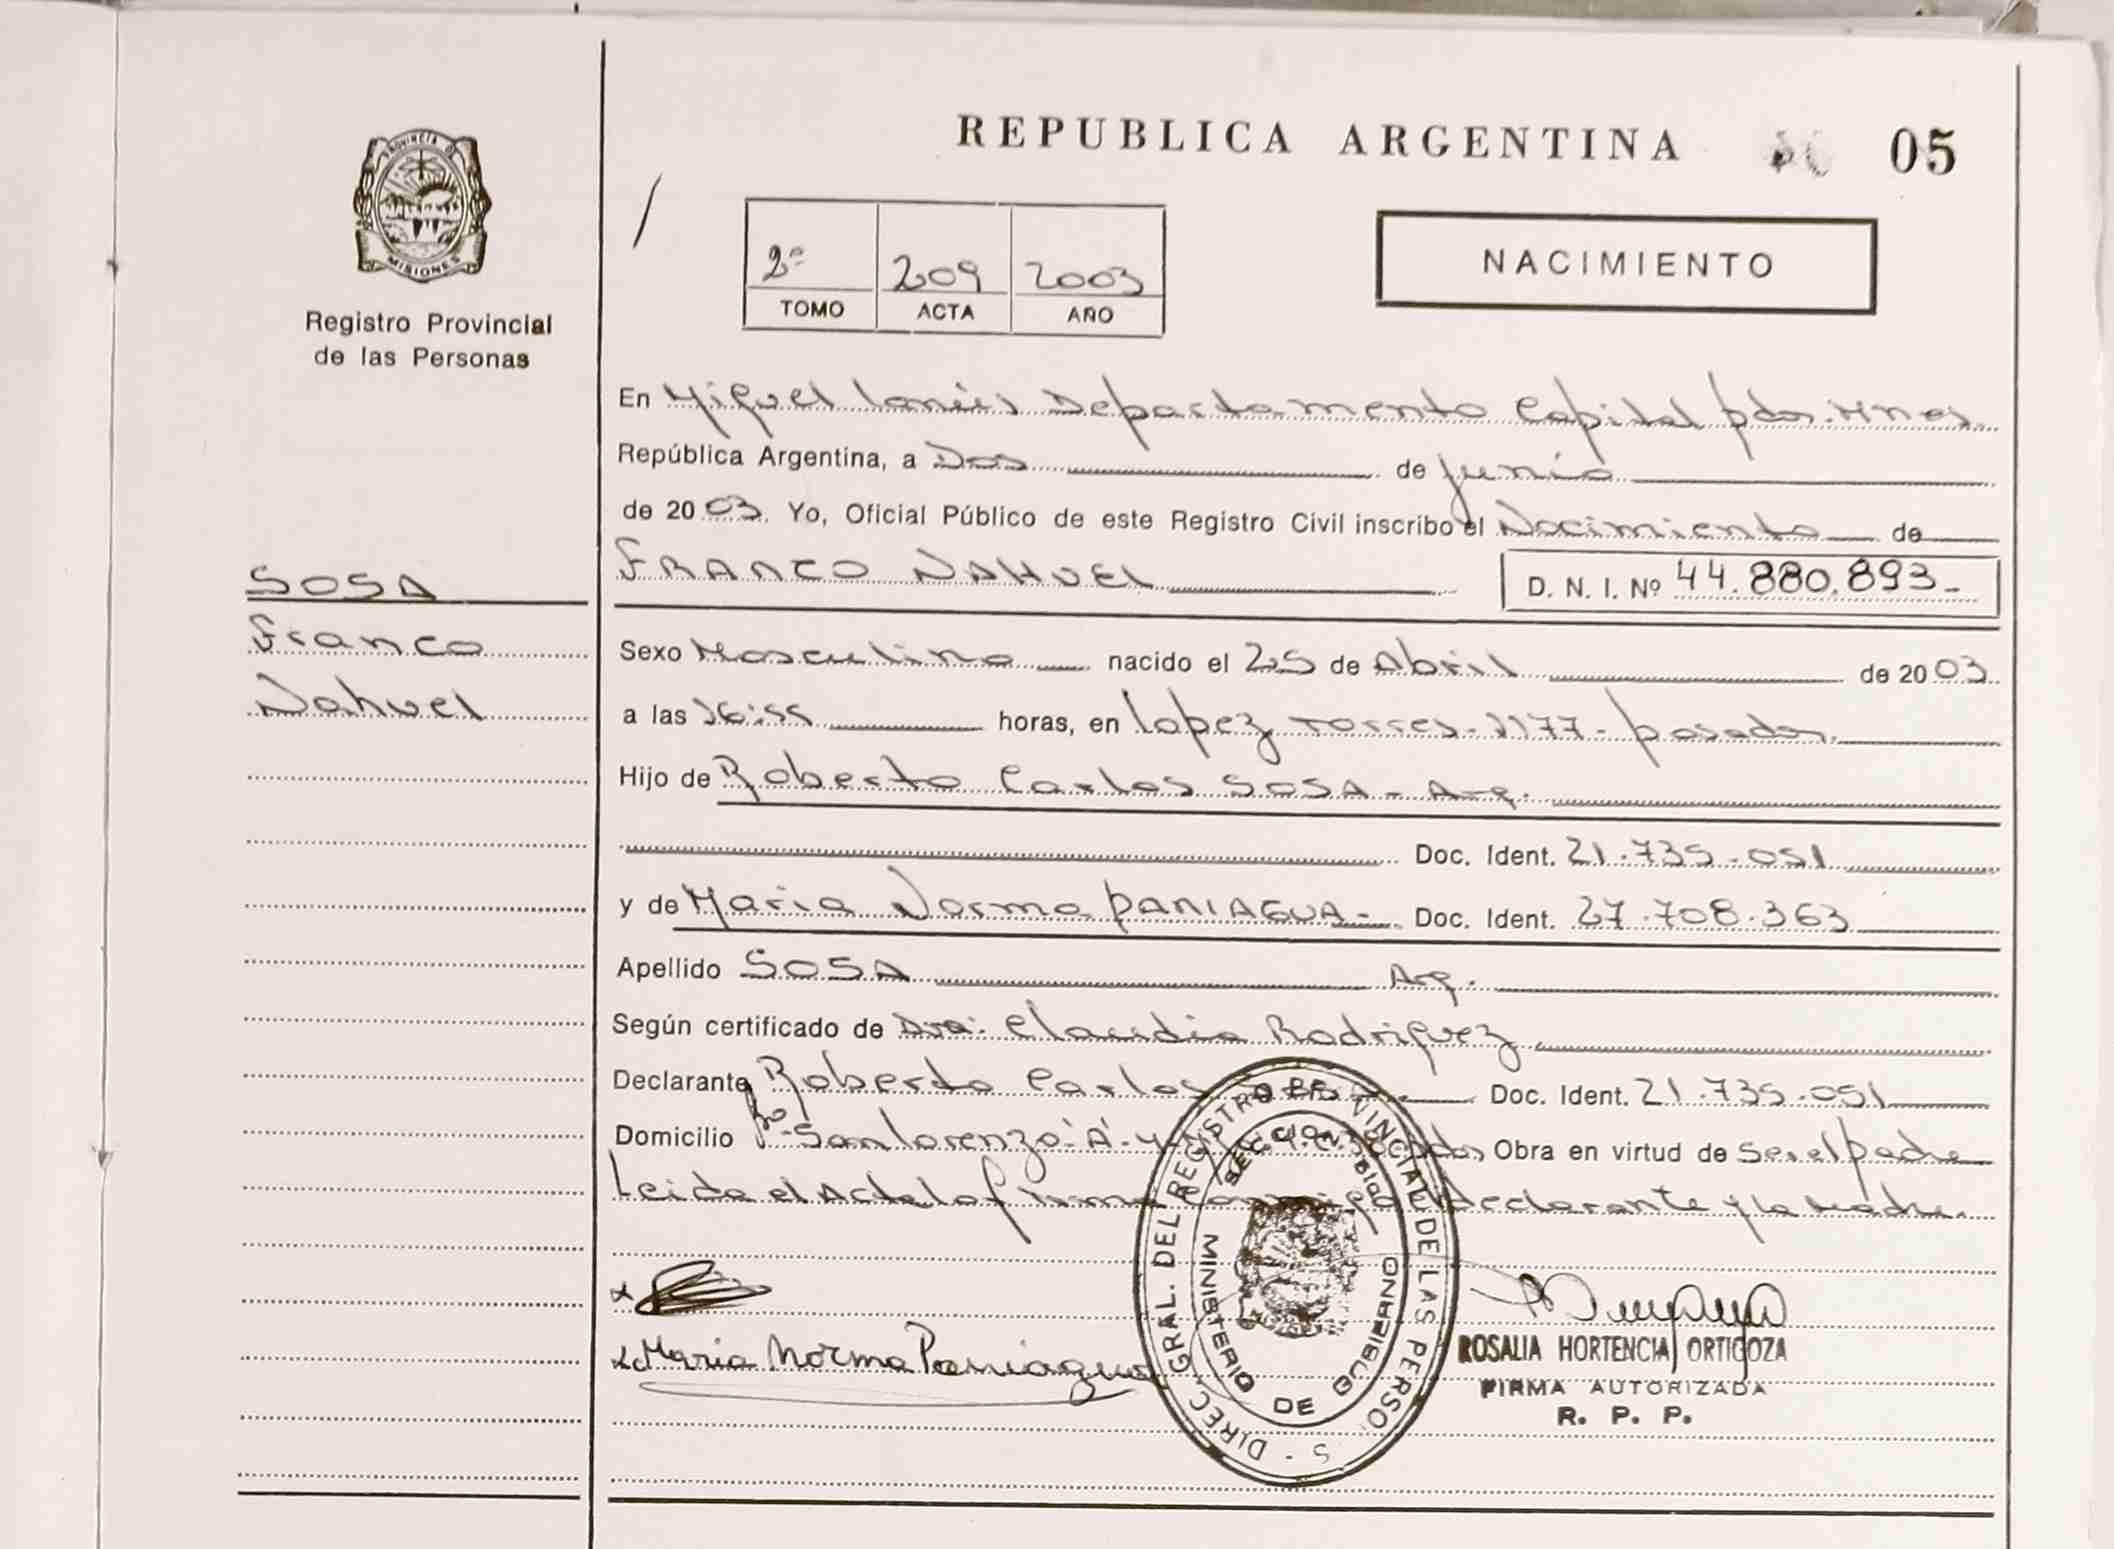 REPUBLICA ARGENTINA 05
PROVINCIA DE
MISIONES
Registro Provincial
de las Personas
2º 209 2003
TOMO ACTA AÑO
NACIMIENTO
En Miguel Lanús Departamento Capital pdas. Mnes.
República Argentina, a Dos de junio
de 2003. Yo, Oficial Público de este Registro Civil inscribo el Nacimiento de
FRANCO NAHUEL D. N. I. Nº 44.880.893-
SOSA
Franco
Nahuel
Sexo Masculino nacido el 25 de Abril de 2003
a las 16:55 horas, en Lopez Torres - 1177 - posadas.
Hijo de Roberto Carlos SOSA - Arg.
Doc. Ident. 21.735.051
y de Maria Norma PANIAGUA - Doc. Ident. 27.708.363
Apellido SOSA Arg.
Según certificado de Dra. Claudia Rodriguez
Declarante Roberto Carlos Doc. Ident. 21.735.051
Domicilio Bº San Lorenzo "A" Obra en virtud de Ser el padre
Leida el Acta la firma Declarante y la Madre.
DIREC. GRAL. DEL REGISTRO PROVINCIAL DE LAS PERSONAS
MINISTERIO DE GOBIERNO
Maria Norma Paniagua
ROSALIA HORTENCIA ORTIGOZA
FIRMA AUTORIZADA
R. P. P.